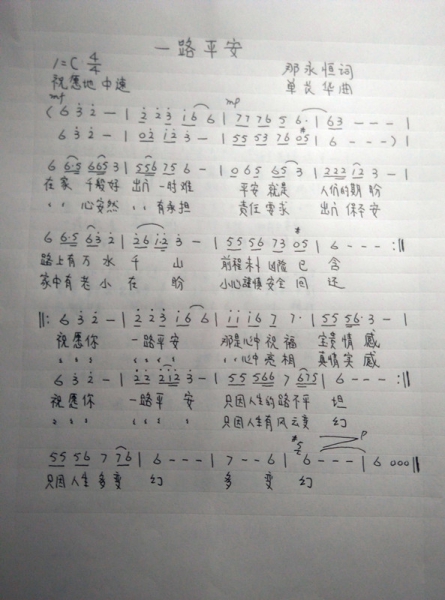 一路平安
1=C 4/4 那永恒词
祝愿地 中速 单长华曲
mf mp
(6 3 2 - | 2 2 3 1 6 6 | 7 7 7 6 5 6· | 6 3 - - - |
6 3 2 - | 0 2 1 2 3 - | 5 5 5 3 7 6 #0 5 | 6 - - - ) |
6 6·5 6 6 5 3 | 5 5 6 7 5 6 - | 0 6 5 6 5 3 | 2 2 2 1 2 3 - |
在家 千般好 出门 一时难 平安 就是 人们的期盼
〃 心安然 〃 有承担 责任 要求 出门 保平安
6 6·5 6 3 2 | 2 6 1 2 3 - | 5 5 5 6 7 3 #0 5 | 6 - - - :||
路上有万水千山 前程利 已含
家中有老小在盼 小心谨慎安全回还
||: 6 3 2 - | 2 2 3 1 6 6 | 1 1 1 6 7 7· | 5 5 5 6·3 - |
祝愿你 一路平安 那是心中祝福 宝贵情感
〃 〃 〃心中亮相 真情实感
6 3 2 - | 2 2 2 1 2 3 - | 5 5 5 6 6 7 6 7 5 | 6 - - - :||
祝愿你 一路平安 只因人生的路不平坦
〃 〃 只因人生有风云变幻
5 5 5 6 7 7 6 | 6 - - - | 7 - - 6 | #5 6 - - - | 6 0 0 0 || p
只因人生多变幻 多变幻